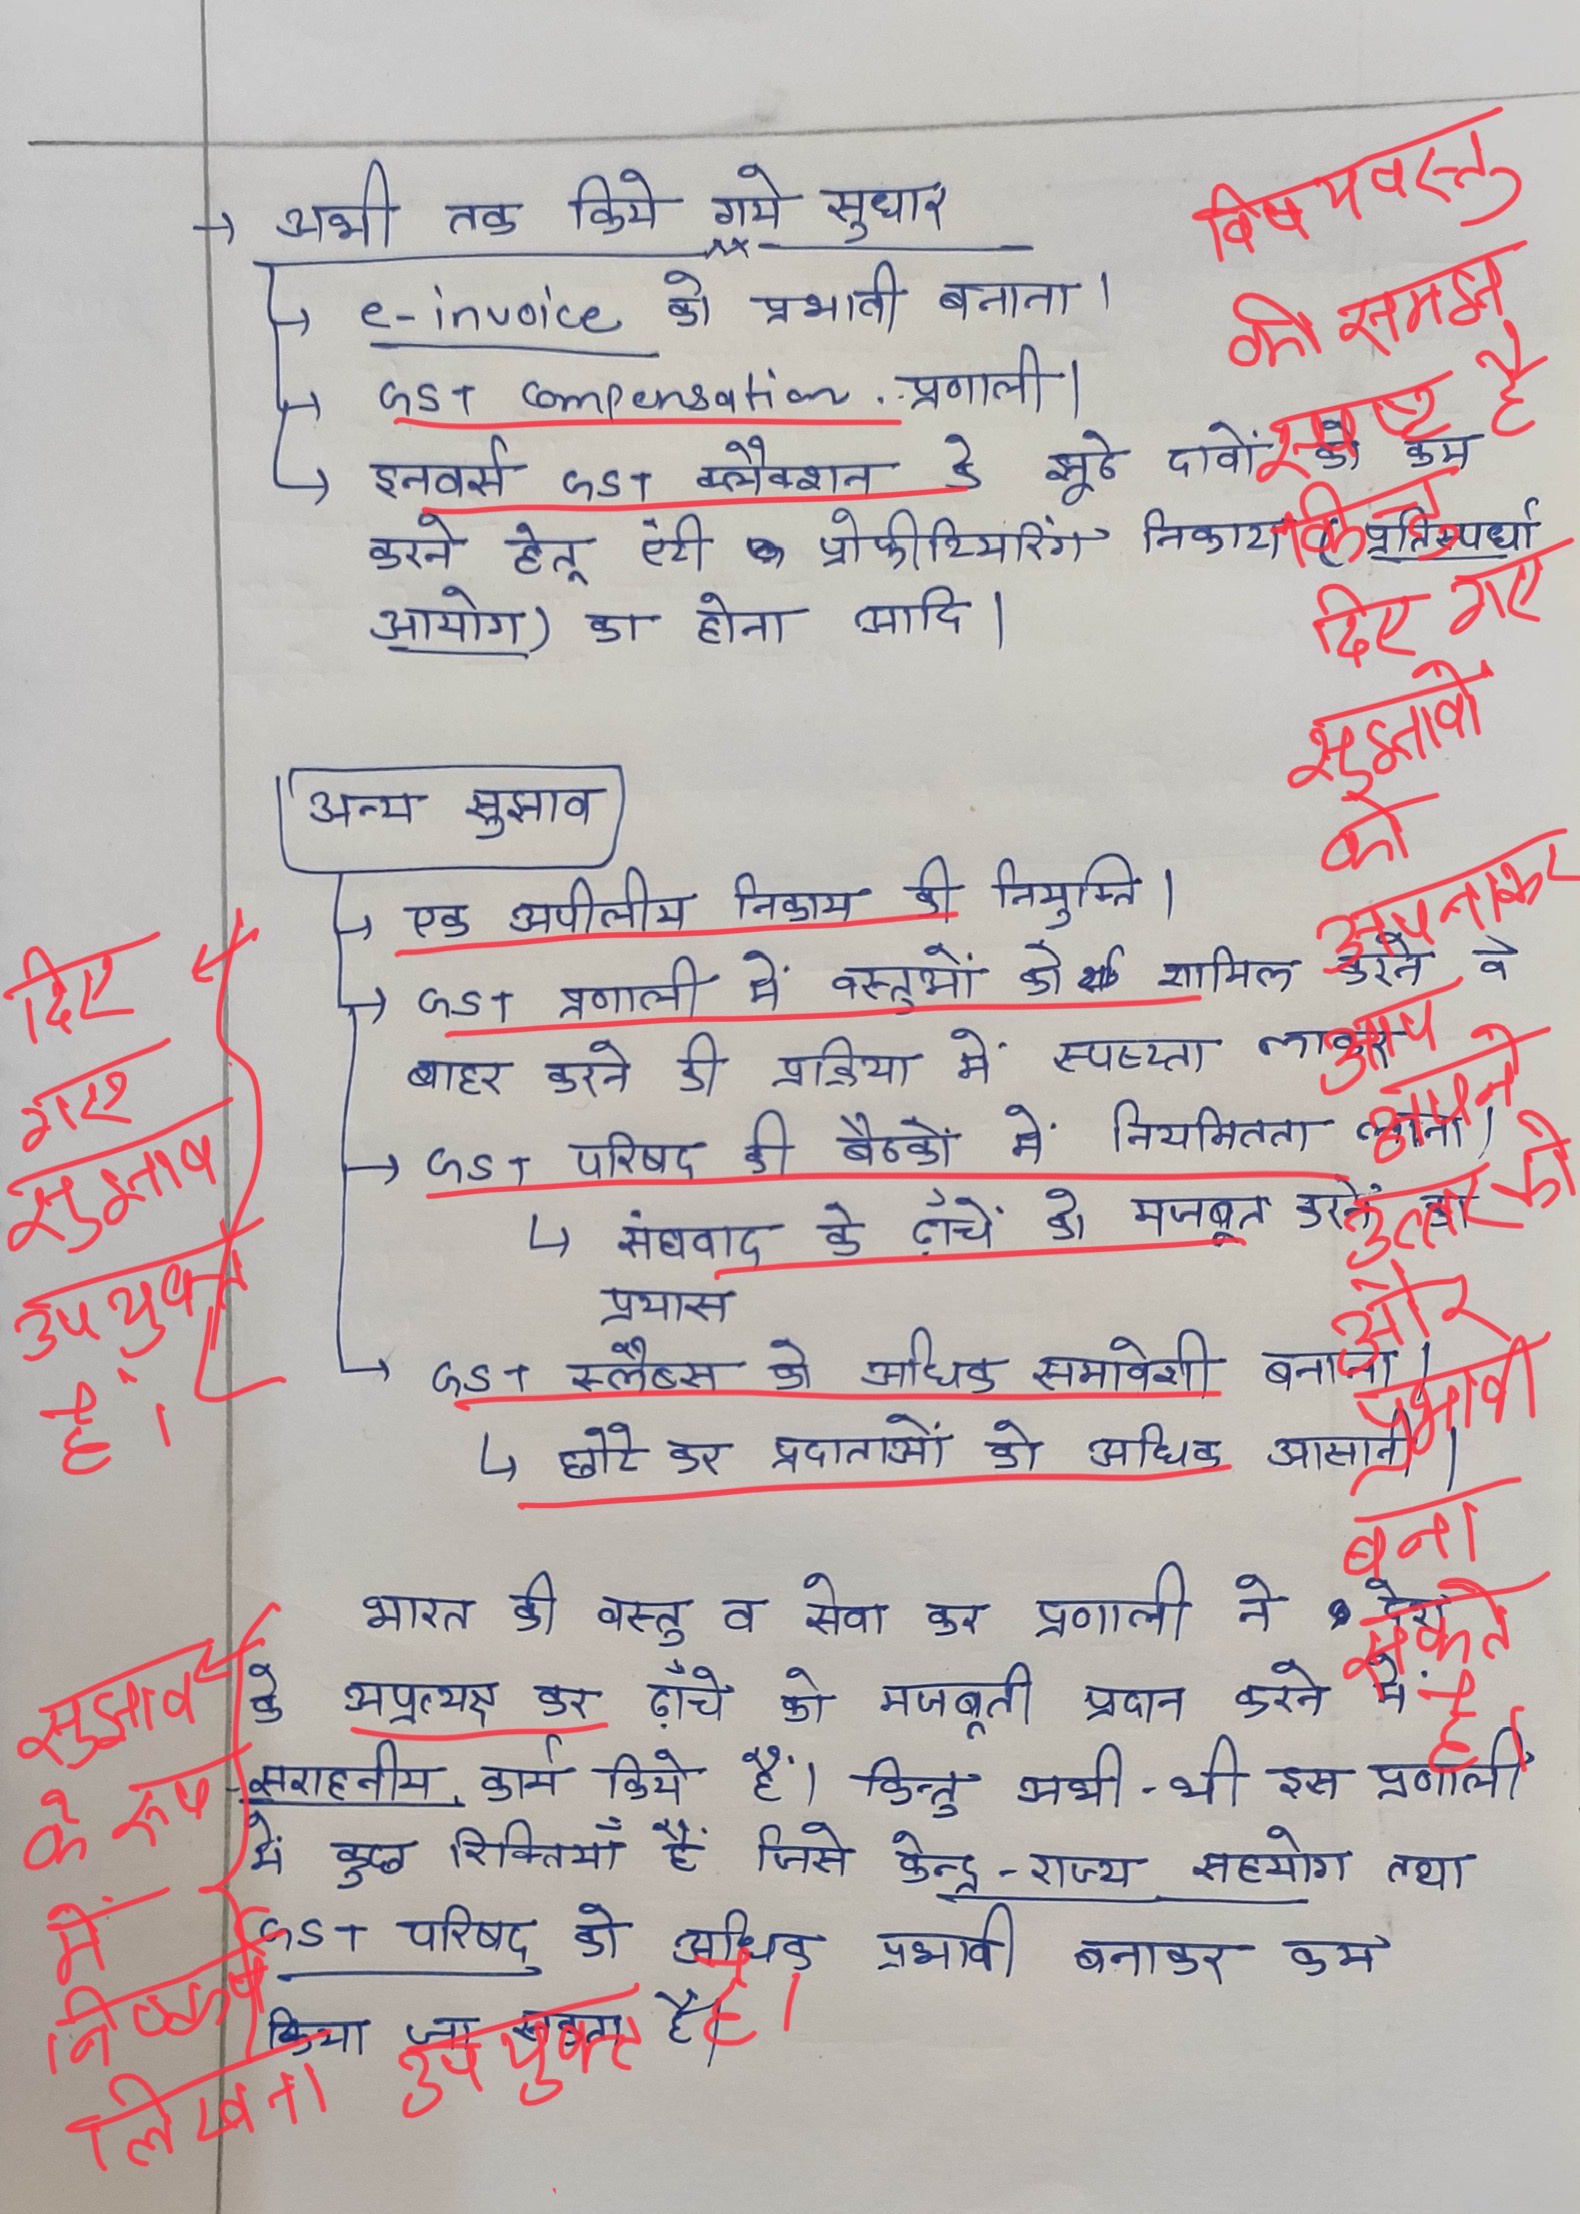 → अभी तक किये गये सुधार
↳ e-invoice को प्रभावी बनाना।
↳ GST compensation प्रणाली।
↳ इनवर्स GST क्लैक्शन के झूठे दावों को कम
करने हेतू एंटी प्रोफीटियरिंग निकाय (प्रतिस्पर्धा
आयोग) का होना आदि।
अन्य सुझाव
↳ एक अपीलीय निकाय की नियुक्ति।
→ GST प्रणाली में वस्तुओं को शामिल करने व
बाहर करने की प्रक्रिया में स्पष्टता लाकर
→ GST परिषद की बैठकों में नियमितता लाना।
↳ संघवाद के ढ़ाँचें को मजबूत करने का
प्रयास
↳ GST स्लैब्स को अधिक समावेशी बनाना।
↳ छोटे कर प्रदाताओं को अधिक आसानी।
भारत की वस्तु व सेवा कर प्रणाली ने देश
के अप्रत्यक्ष कर ढ़ाँचे को मजबूती प्रदान करने में
सराहनीय कार्य किये हैं। किन्तु अभी-भी इस प्रणाली
में कुछ रिक्तियाँ हैं जिसे केन्द्र-राज्य सहयोग तथा
GST परिषद् को अधिक प्रभावी बनाकर कम
किया जा सकता है।
विषयवस्तु
की समझ
स्पष्ट है
किन्तु
दिए गए
सुझावों
को
अपनाकर
आप
अपने
उत्तर को
और
प्रभावी
बना
सकते
हैं।
दिए
गए
सुझाव
उपयुक्त
हैं।
सुझाव
के रूप
में
निष्कर्ष
लिखना उपयुक्त है।